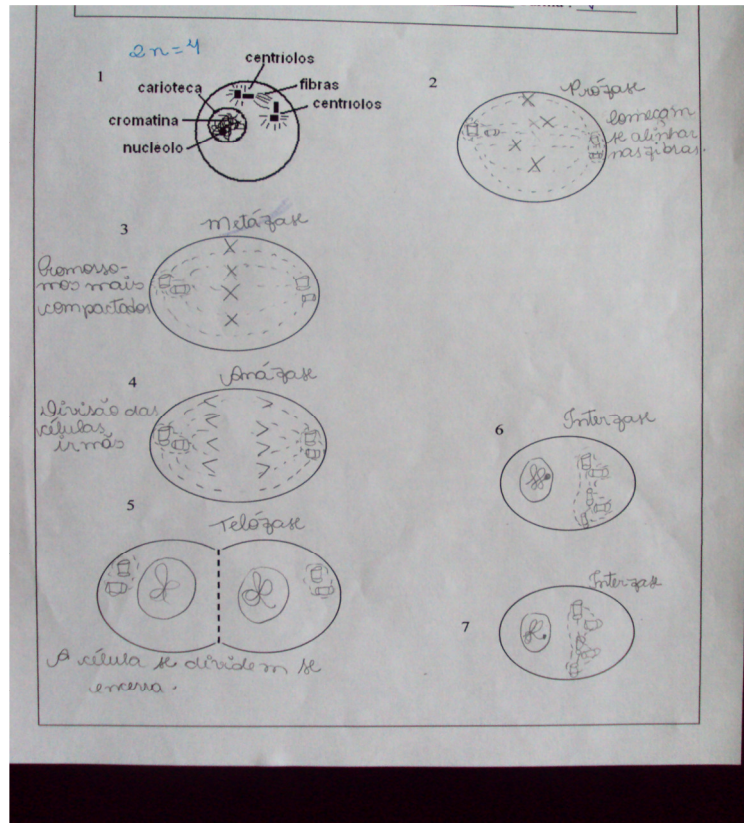 2n=4
1
centríolos
carioteca
fibras
centríolos
cromatina
nucleolo
2
Prófase
Começam
se alinhar
nas fibras.
3
Metáfase
Cromosso-
mos mais
compactados
4
Anáfase
Divisão das
células
irmãs
5
Telófase
A célula se dividem se
encerra.
6
Interfase
7
Interfase